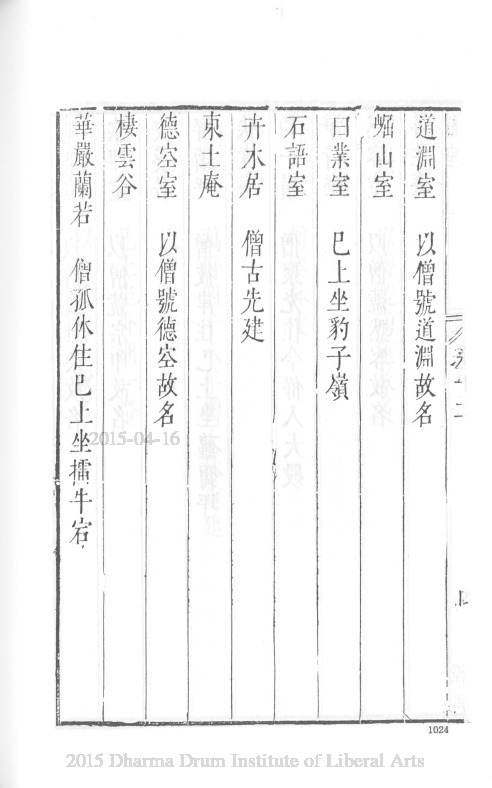 道淵室　以僧號道淵故名
崛山室
曰業室　巳上坐豹子嶺
石語室
卉木居　僧古先建
東土庵
德空室　以僧號德空故名
棲雲谷
華嚴蘭若　僧孤休住巳上坐擂牛宕
1024
2015-04-16
2015 Dharma Drum Institute of Liberal Arts